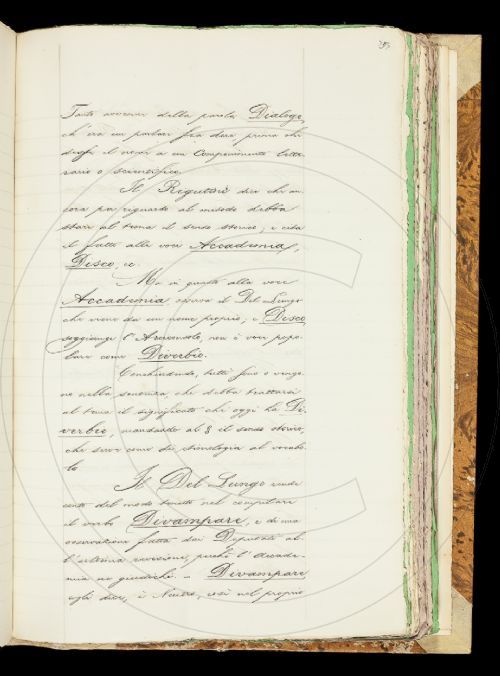 Tanto avvenne della parola Dialogo,
ch'era un parlar fra due prima che
desse il nome a un Componimento lette
rario o scientifico.
Il Rigutini dice che an
cora per riguardo al metodo debba
stare al tema il senso storico; e cita
il fatto alle voci Accademia,
Desco, ec.
Ma in quanto alla voce
Accademia, osserva il Del Lungo
che viene da un nome proprio; e Desco,
soggiunge l'Arciconsolo, non è voce popo
lare come Diverbio.
Conchiudendo, tutti sono o vengo
no nella sentenza che debba trattarsi
al tema il significato che oggi ha Di
verbio, mandando al § il senso storico,
che serve come di etimologia al vocabo
lo
Il Del Lungo rende
conto del modo tenuto nel compilare
il verbo Divampare, e di una
osservazione fatta dai Deputati al
l'ultima revisione, perché l'Accade
mia ne giudichi. = Divampare
egli dice, è Neutro, così nel proprio